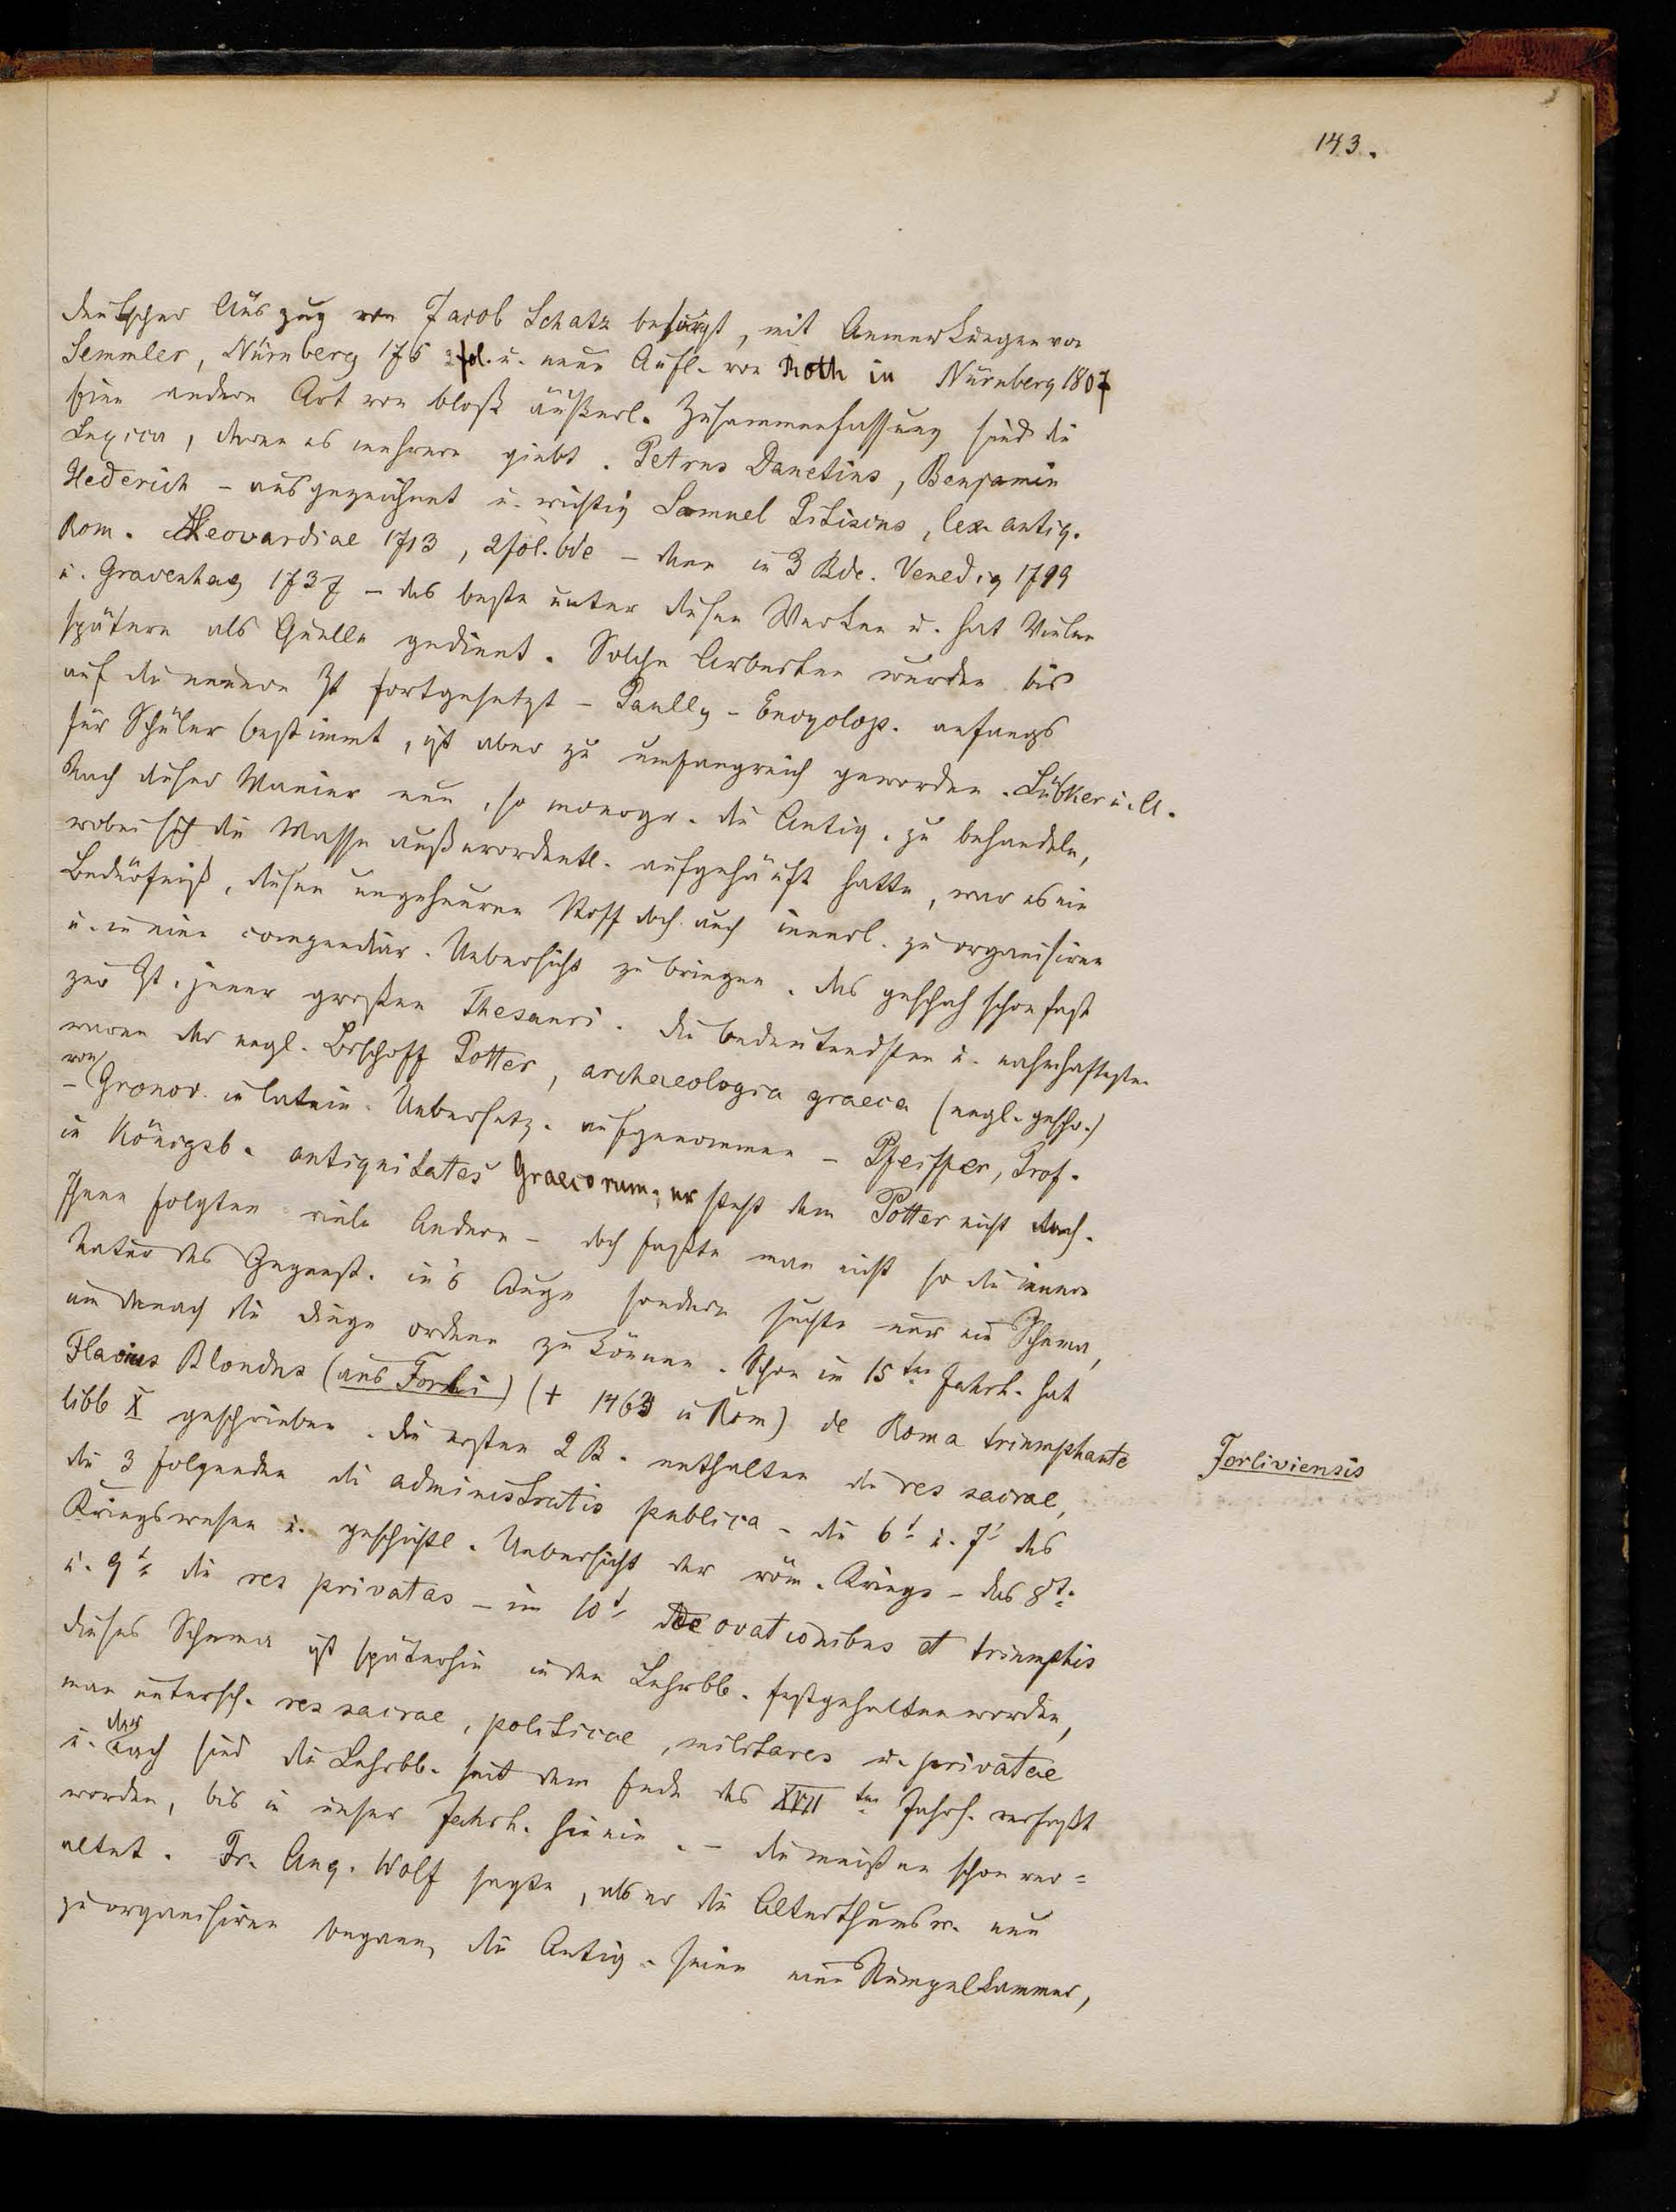 143.
deutscher Auszug von Jacob Schatz besorgt, mit Anmerkungen von
Semmler, Nürnberg 175 fol. u. neue Aufl. von Roth in Nürnberg 1807
Eine andere Art von bloß äußerl. Zusammenfassung sind die
Lexica, deren es mehrere giebt. Petrus Danetius, Benjamin
Hederich – ausgezeichnet u. wichtig Samuel Pitiscus, lex. antiq.
Rom. Leovardiae 1713, 2 fol. bde – dann in 3 Bde. Venedig 1719
u. Gravenhag 1737 – das beste unter diesen Werken u. hat Vielen
später als Quelle gedient. Solche Arbeiten wurden bis
auf die neuere Zt fortgesetzt – Paully – Encyclop. anfangs
für Schüler bestimmt, ist aber zu umfangreich geworden. Lübker u. A.
Nach dieser Manier nun, so monogr. die Antiq. zu behandeln,
wobei sich die Masse außerordentl. aufgehäuft hatte, war es ein
Bedürfniß, diesen ungeheuren Stoff doch auch innerl. zu organisiren
u. in eine compendiar. Uebersicht zu bringen. das geschah schon fast
zur Zt. jener großen Thesauri. die bedeutendsten u. nahmhaftesten
waren der engl. Bischoff Potter, archaeologia graeca (engl. geschr.)
– von Gronov. in latein. Uebersetz. aufgenommen – Pfeiffer, Prof.
in Königsb. antiquitates Graecorum, er steht dem Potter nicht nach.
Ihnen folgten viele Andere – doch faßte man nicht so die innere
Natur des Gegenst. in's Auge sondern suchte nur ein Schema,
um danach die Dinge ordnen zu können. Schon im 15ten Jahrh. hat
Flavius Blondus (aus Forli) († 1463 in Rom) de Roma triumphante
libb X geschrieben. die ersten 2 B. enthalten die res sacrae,
die 3 folgenden die administratio publica – die 6t u. 7t das
Kriegswesen u. geschichtl. Uebersicht der röm. Kriege – das 8te
u. 9te die res privatas – im 10t de ovationibus et triumphis
dieses Schema ist späterhin in den Lehrbb. festgehalten worden,
man untersch. res sacrae, politicae, militares u. privatae
u. darnach sind die Lehrbb. seit dem Ende des XVII ten Jahrh. verfaßt
worden, bis in unser Jahrh. hinein. – die meisten schon ver=
altet. Fr. Aug. Wolf sagte, als er die Alterthumsw. neu
zu organisiren begann, die Antiq. seien eine Rumpelkammer,
Forliviensis